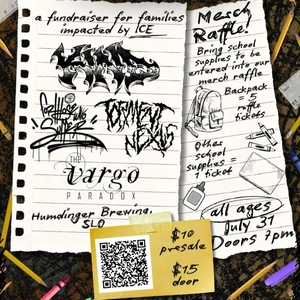 a fundraiser for families
impacted by ICE
TORMENT
NEXUS
THE
Vargo
PARADOX
Humdinger Brewing,
SLO
Merch
Raffle!
Bring school
supplies to be
entered into our
merch raffle
Backpack
= 5
raffle
tickets
Other
school
supplies =
1 ticket
all ages
July 31
Doors 7pm
$10
presale
$15
door